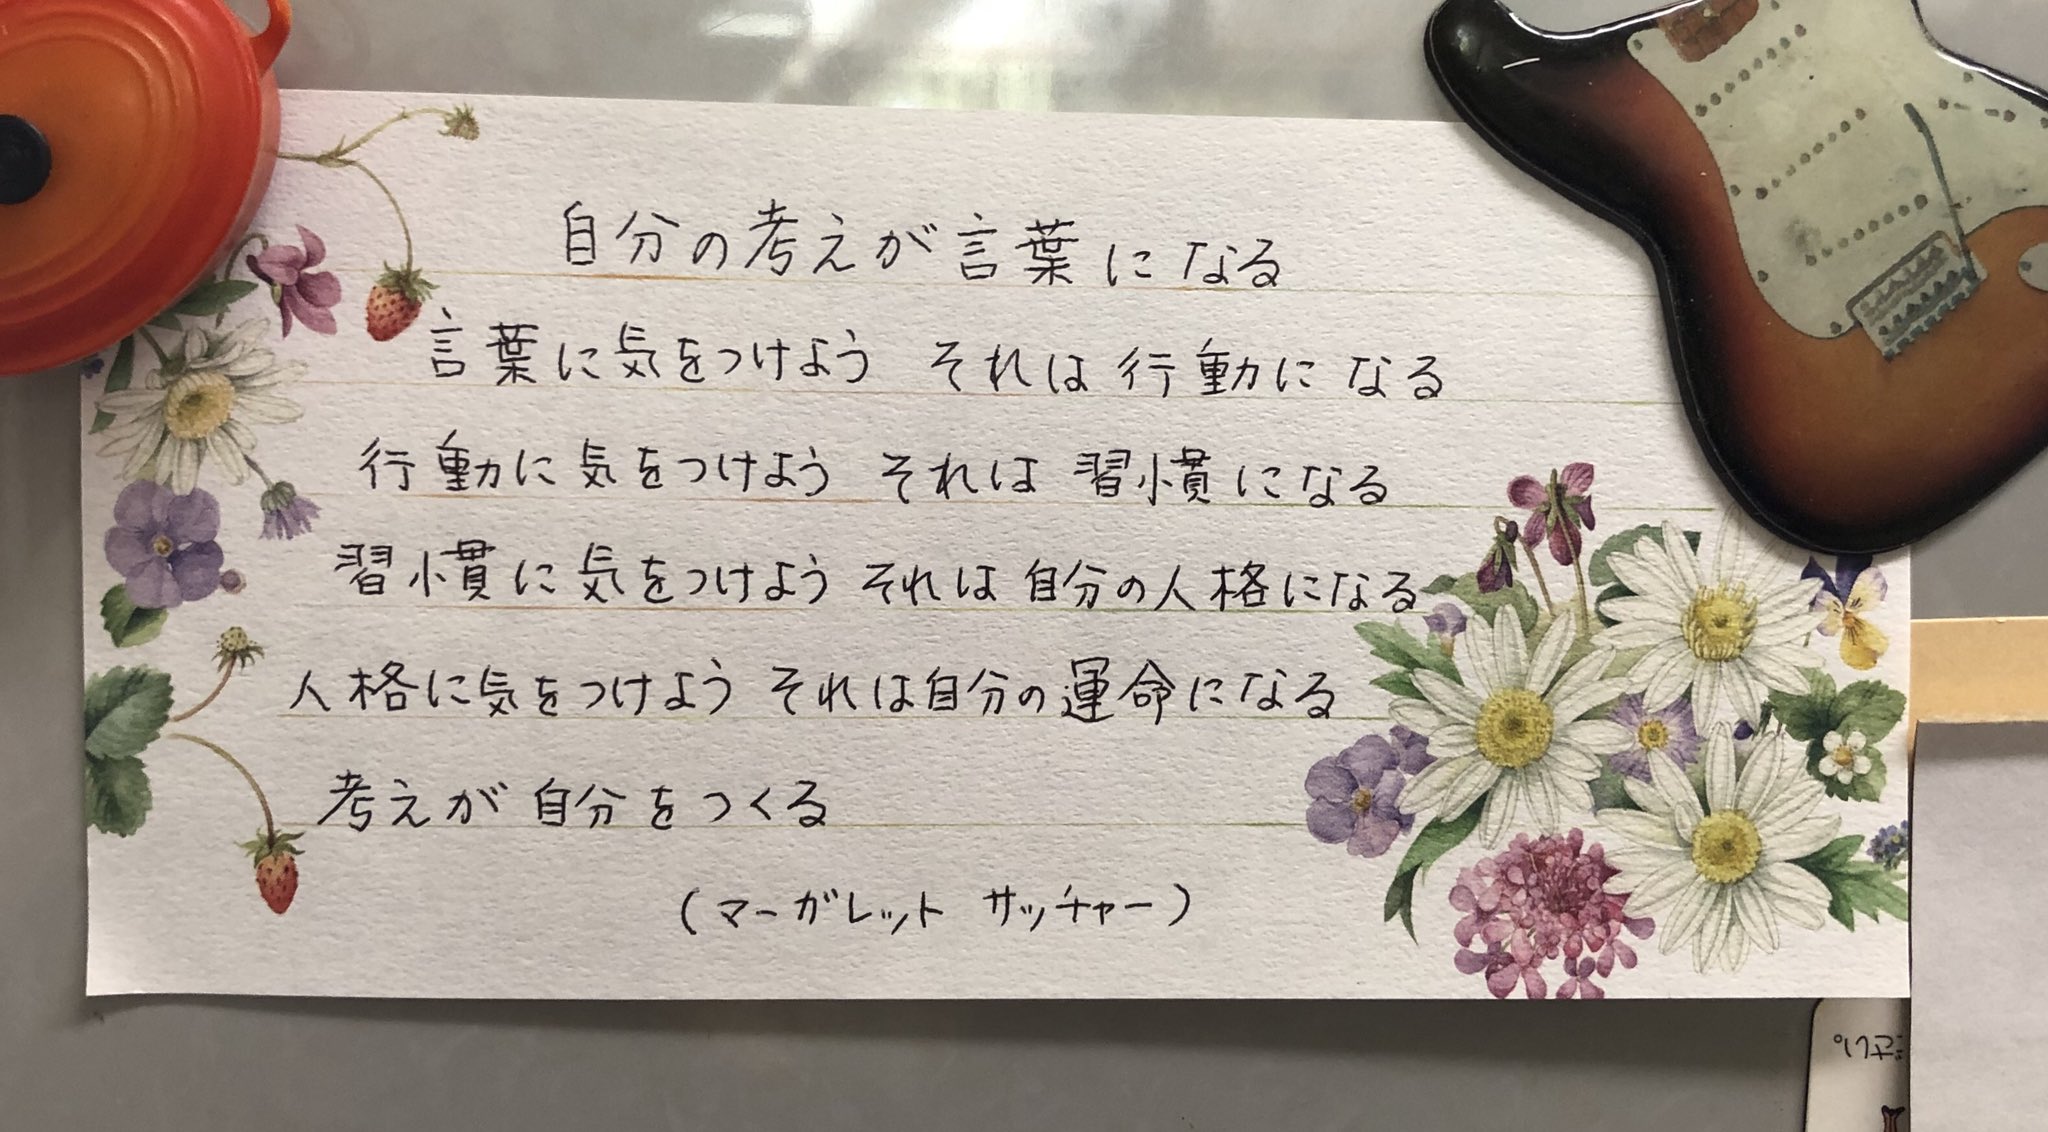 自分の考えが言葉になる
言葉に気をつけよう それは行動になる
行動に気をつけよう それは習慣になる
習慣に気をつけよう それは自分の人格になる
人格に気をつけよう それは自分の運命になる
考えが自分をつくる
(マーガレット サッチャー)